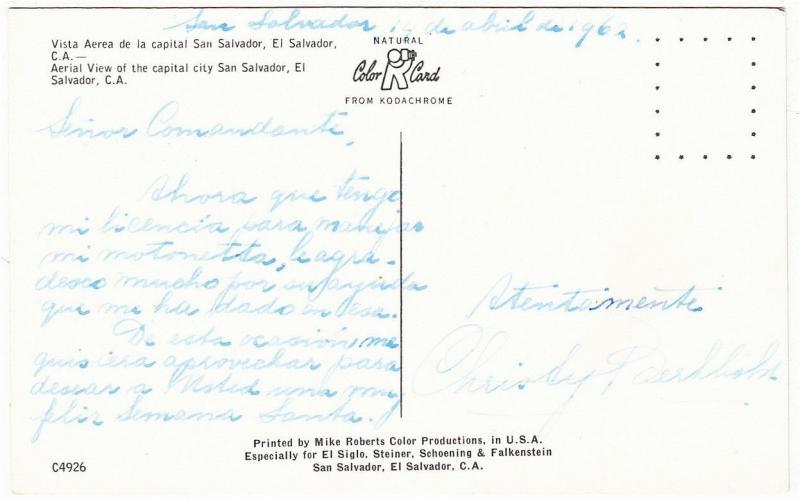 San Salvador 19 de abril de 1962.
Vista Aerea de la capital San Salvador, El Salvador,
C.A.—
Aerial View of the capital city San Salvador, El
Salvador, C.A.
NATURAL
Color Card
FROM KODACHROME
Señor Comandante,
Ahora que tengo
mi licencia para manejar
mi motonetta, le agra-
desco mucho por su ayuda
que me ha dado en esa.
De esta ocasión me
quisiera aprovechar para
desear a Usted una muy
feliz Semana Santa.
Atentamente
Christy
Printed by Mike Roberts Color Productions, in U.S.A.
Especially for El Siglo, Steiner, Schoening & Falkenstein
San Salvador, El Salvador, C.A.
C4926